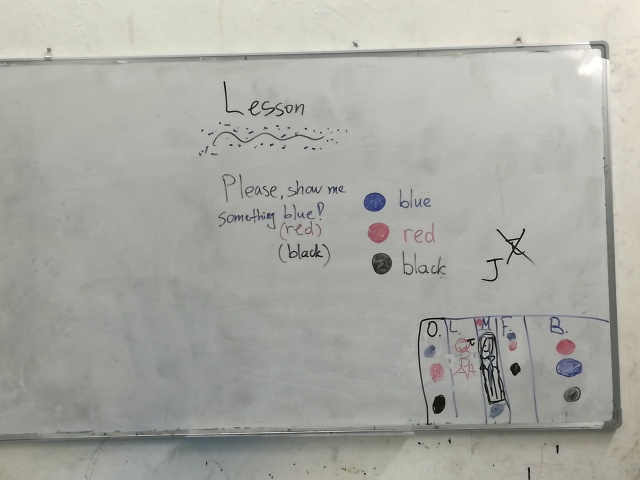 Lesson
Please, show me
something blue!
(red)
(black)
blue
red
black
J
O. L. M F. B.